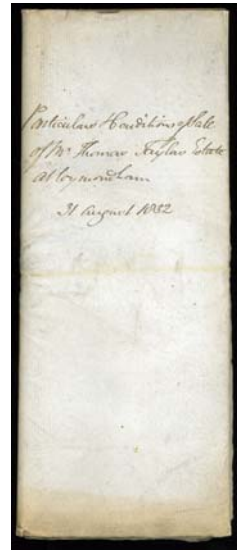 Particulars & Conditions of Sale
of Mr. Thomas Taylors Estate
at Wymondham
31 August 1832